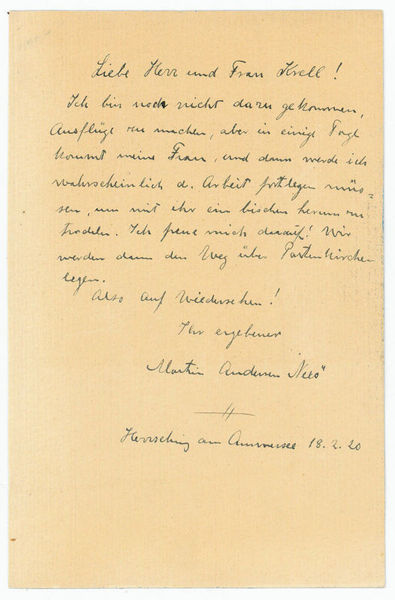 Liebe Herr und Frau Krell!
Ich bin noch nicht dazu gekommen,
Ausflüge zu machen, aber in einige Tage
kommt meine Frau, und dann werde ich
wahrscheinlich d. Arbeit fortlegen müs-
sen, um mit ihr ein bischen herum zu
trodeln. Ich freue mich darauf! Wir
werden dann den Weg über Partenkirchen
legen.
Also auf Wiedersehen!
Ihr ergebener
Martin Andersen Nexö
Herrsching am Ammersee 18.2.20